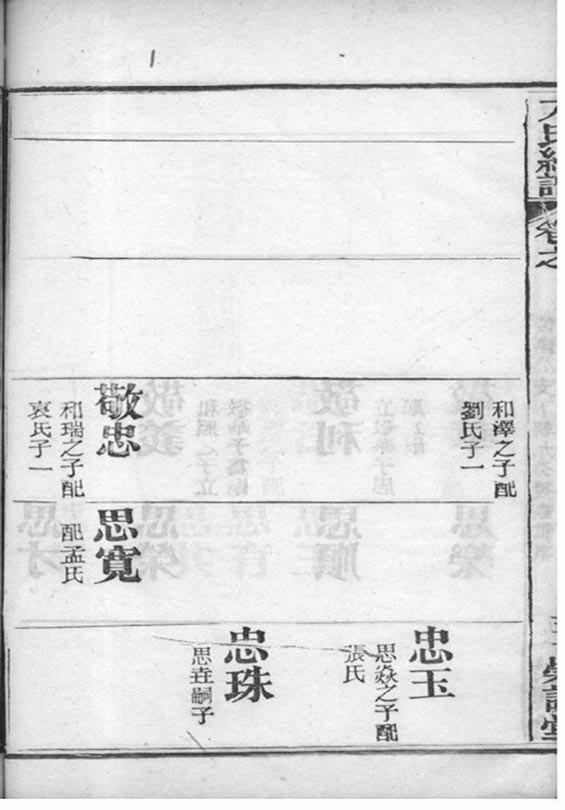 氏統譜
卷之
和澤之子配
劉氏子一
敬忠
和瑞之子配
袁氏子一
思寬
配孟氏
忠玉
思焱之子配
張氏
忠珠
思垚嗣子